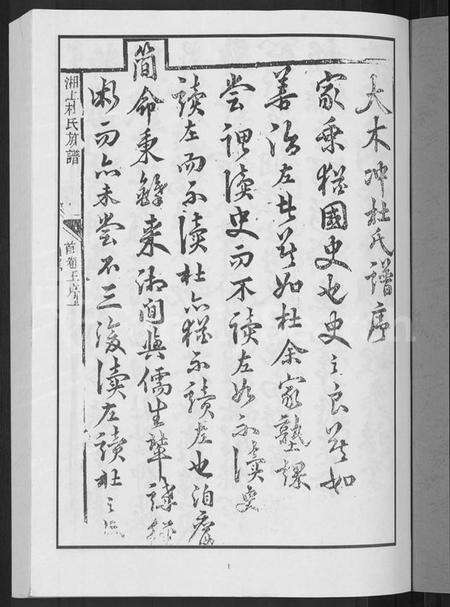 大木冲杜氏譜序
家乘猶國史也史之良莫如
善治左者莫如杜余家塾課
嘗謂讀史而不讀左如不讀史
讀左而不讀杜亦猶不讀左也洎膺
簡命秉鐸來湘間與儒生輩講
而亦未嘗不三復讀左讀杜之
湘上杜氏族譜
首卷王序
1